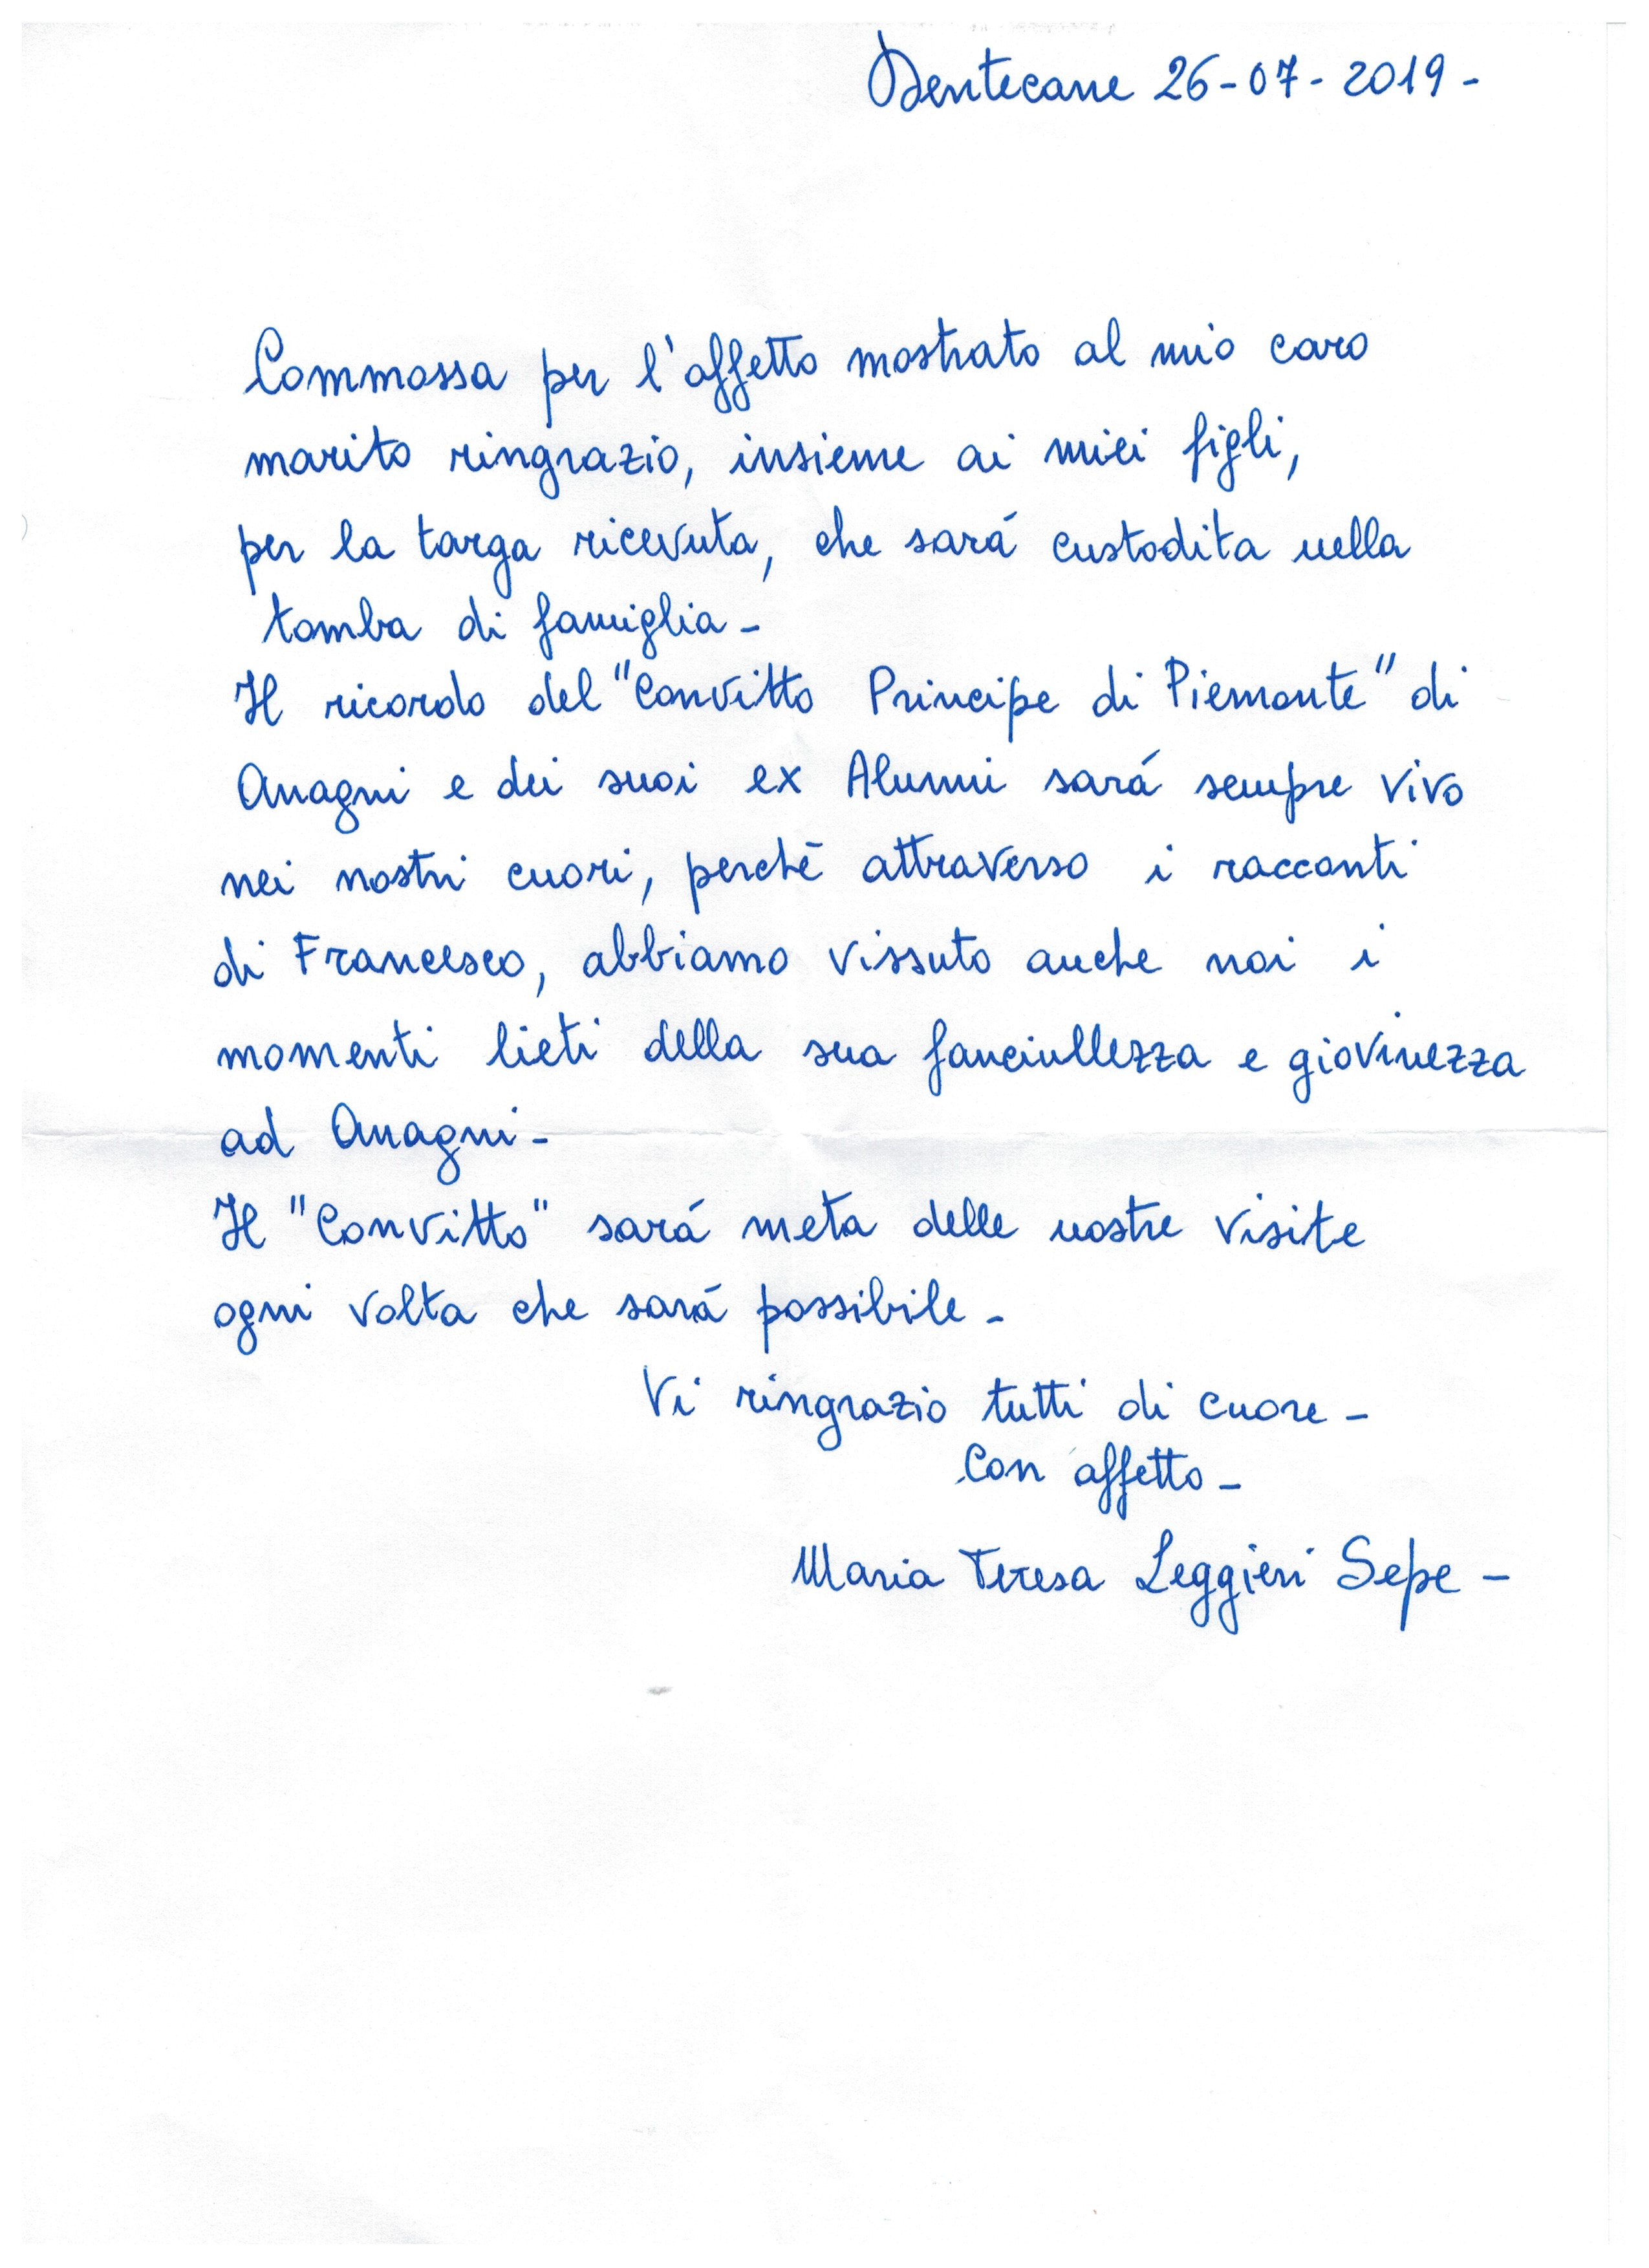 Dentecane 26-07-2019-
Commossa per l'affetto mostrato al mio caro
marito ringrazio, insieme ai miei figli,
per la targa ricevuta, che sará custodita nella
tomba di famiglia-
Il ricordo del "Convitto Principe di Piemonte" di
Anagni e dei suoi ex Alunni sará sempre vivo
nei nostri cuori, perché attraverso i racconti
di Francesco, abbiamo vissuto anche noi i
momenti lieti della sua fanciullezza e giovinezza
ad Anagni-
Il "Convitto" sará meta delle nostre visite
ogni volta che sará possibile-
Vi ringrazio tutti di cuore-
Con affetto-
Maria Teresa Leggieri Sepe-